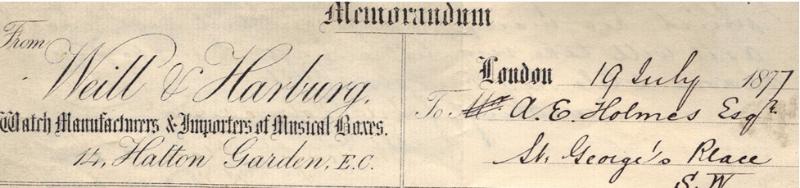 Memorandum
From
Weill & Harburg.
Watch Manufacturers & Importers of Musical Boxes.
14, Hatton Garden, E.C.
London 19 July 1897
To A. E. Holmes Esqr
St. George's Place
S.W